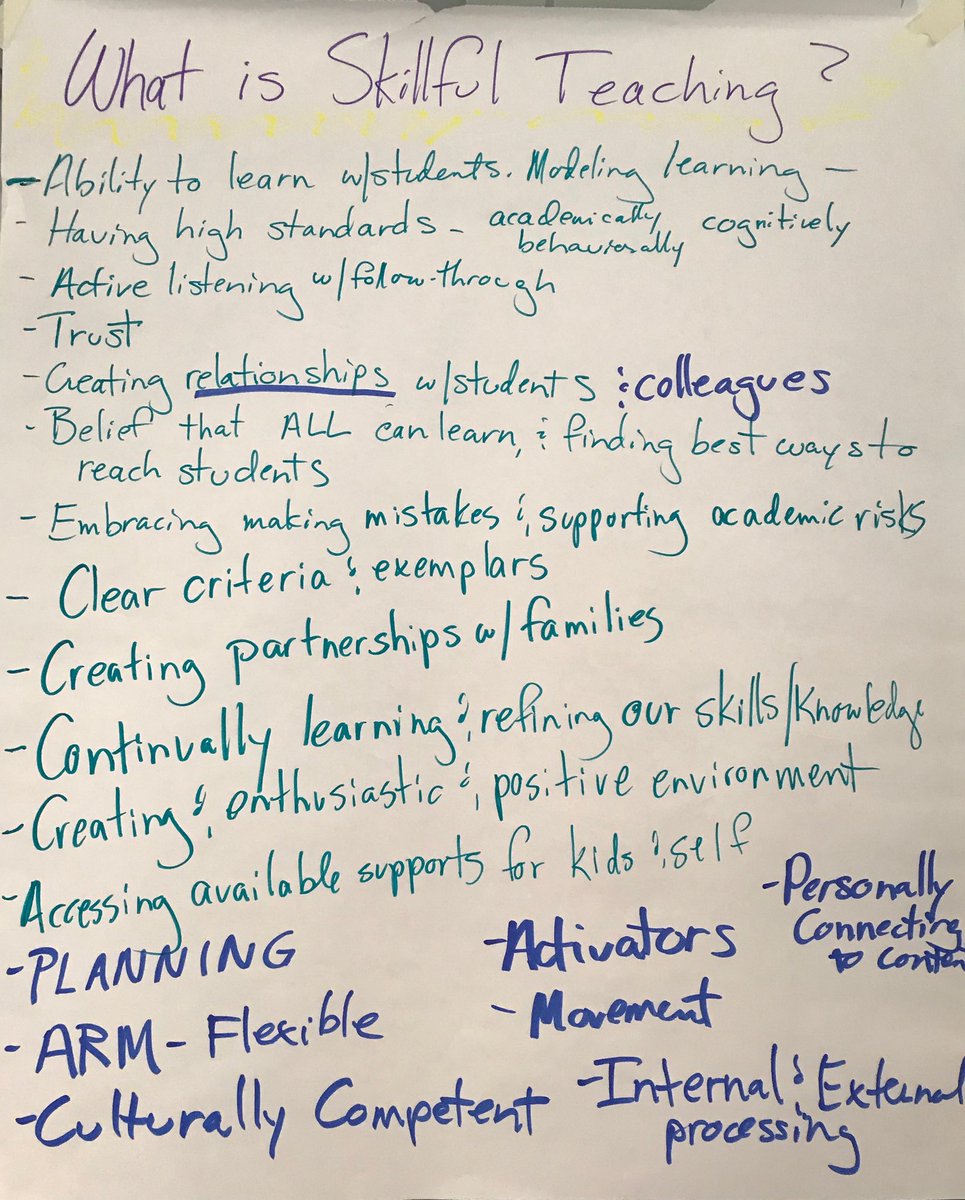 What is Skillful Teaching?
- Ability to learn w/students. Modeling learning -
- Having high standards - academically cognitively
behaviorally
- Active listening w/follow-through
- Trust
- Creating relationships w/students & colleagues
- Belief that ALL can learn, & finding best ways to
reach students
- Embracing making mistakes & supporting academic risks
- Clear criteria & exemplars
- Creating partnerships w/families
- Continually learning & refining our skills/knowledge
- Creating & enthusiastic & positive environment
- Accessing available supports for kids & self
- PLANNING
- ARM - Flexible
- Culturally Competent
- Activators
- Movement
- Internal & External
processing
- Personally
Connecting
to conten